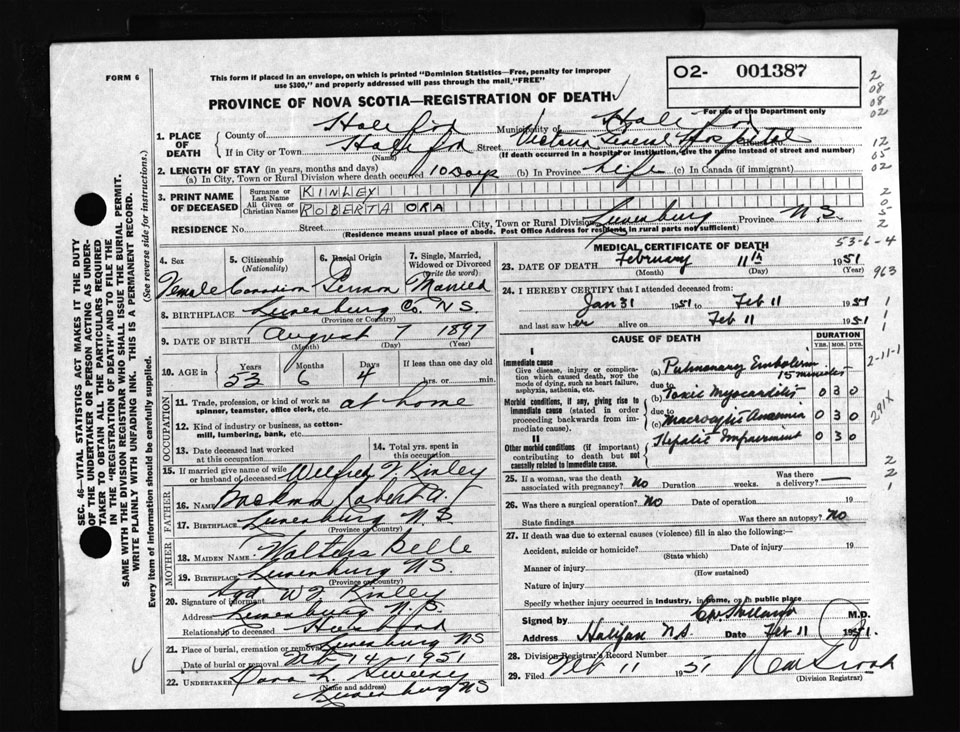 FORM 6
This form if placed in an envelope, on which is printed "Dominion Statistics—Free, penalty for improper
use $300," and properly addressed will pass through the mail, "FREE"
PROVINCE OF NOVA SCOTIA—REGISTRATION OF DEATH
02- 001387
For use of the Department only
2
08
08
02
12
05
02
2
0
5
2
53-6-4
963
1
1
1
2-11-1
291X
2
2
1
SEC. 46—VITAL STATISTICS ACT MAKES IT THE DUTY
OF THE UNDERTAKER OR PERSON ACTING AS UNDER-
TAKER TO OBTAIN ALL THE PARTICULARS REQUIRED
IN THE "REGISTRATION OF DEATH" AND TO FILE THE
SAME WITH THE DIVISION REGISTRAR WHO SHALL ISSUE THE BURIAL PERMIT.
WRITE PLAINLY WITH UNFADING INK. THIS IS A PERMANENT RECORD.
Every item of information should be carefully supplied. (See reverse side for instructions.)
1. PLACE OF DEATH
County of Halifax Municipality of Halifax
If in City or Town Halifax Street Victoria Hospital House No.
(Name) (If death occurred in a hospital or institution, give the name instead of street and number)
2. LENGTH OF STAY (in years, months and days)
(a) In City, Town or Rural Division where death occurred 10 Days (b) In Province Life (c) In Canada (if immigrant)
3. PRINT NAME OF DECEASED
Surname or Last Name KINLEY
All Given or Christian Names ROBERTA ORA
RESIDENCE No. Street City, Town or Rural Division Lunenburg Province N.S.
(Residence means usual place of abode. Post Office Address for residents in rural parts not sufficient)
4. Sex 5. Citizenship (Nationality) 6. Racial Origin 7. Single, Married, Widowed or Divorced (Write the word)
Female Canadian German Married
8. BIRTHPLACE Lunenburg Co. N.S.
(Province or Country)
9. DATE OF BIRTH August 7 1897
(Month) (Day) (Year)
10. AGE in Years Months Days If less than one day old
53 6 4 hrs. or min.
OCCUPATION
11. Trade, profession, or kind of work as
spinner, teamster, office clerk, etc. at home
12. Kind of industry or business, as cotton-
mill, lumbering, bank, etc.
13. Date deceased last worked
at this occupation
14. Total yrs. spent in
this occupation
15. If married give name of wife
or husband of deceased Wilfred J. Kinley
FATHER
16. Name Backman Robert A.
17. Birthplace Lunenburg N.S.
(Province or Country)
MOTHER
18. Maiden Name Walters Belle
19. Birthplace Lunenburg N.S.
(Province or Country)
20. Signature of informant Sgd W J Kinley
Address Lunenburg N.S.
Relationship to deceased Husband
21. Place of burial, cremation or removal Lunenburg NS
Date of burial or removal Feb 14 - 1951
22. Undertaker
(Name and address)
Lunenburg NS
MEDICAL CERTIFICATE OF DEATH
23. DATE OF DEATH February 11th 1951
(Month) (Day) (Year)
24. I HEREBY CERTIFY that I attended deceased from:
Jan 31 1951 to Feb 11 1951
and last saw her alive on Feb 11 1951
CAUSE OF DEATH DURATION
YRS. MOS. DYS.
I
Immediate cause
Give disease, injury or complica-
tion which caused death, NOT the
mode of dying, such as heart failure,
asphyxia, asthenia, etc.
(a) Pulmonary Embolism 15 minutes
due to
Morbid conditions, if any, giving rise to
immediate cause (stated in order
proceeding backwards from im-
mediate cause).
(b) Toxic Myocarditis 0 3 0
due to
(c) Macrocytic Anaemia 0 3 0
II
Other morbid conditions (if important)
contributing to death but not
causally related to immediate cause.
Hepatic Impairment 0 3 0
25. If a woman, was the death
associated with pregnancy? No Duration weeks. Was there
a delivery? —
26. Was there a surgical operation? No Date of operation 19
State findings Was there an autopsy? No
27. If death was due to external causes (violence) fill in also the following:
Accident, suicide or homicide? Date of injury 19
(State which)
Manner of injury
(How sustained)
Nature of injury
Specify whether injury occurred in industry, in home, or in public place
Signed by M.D.
Address Halifax N.S. Date Feb 11 1951.
28. Division Registrar's Record Number
29. Filed Feb 11 1951
(Division Registrar)